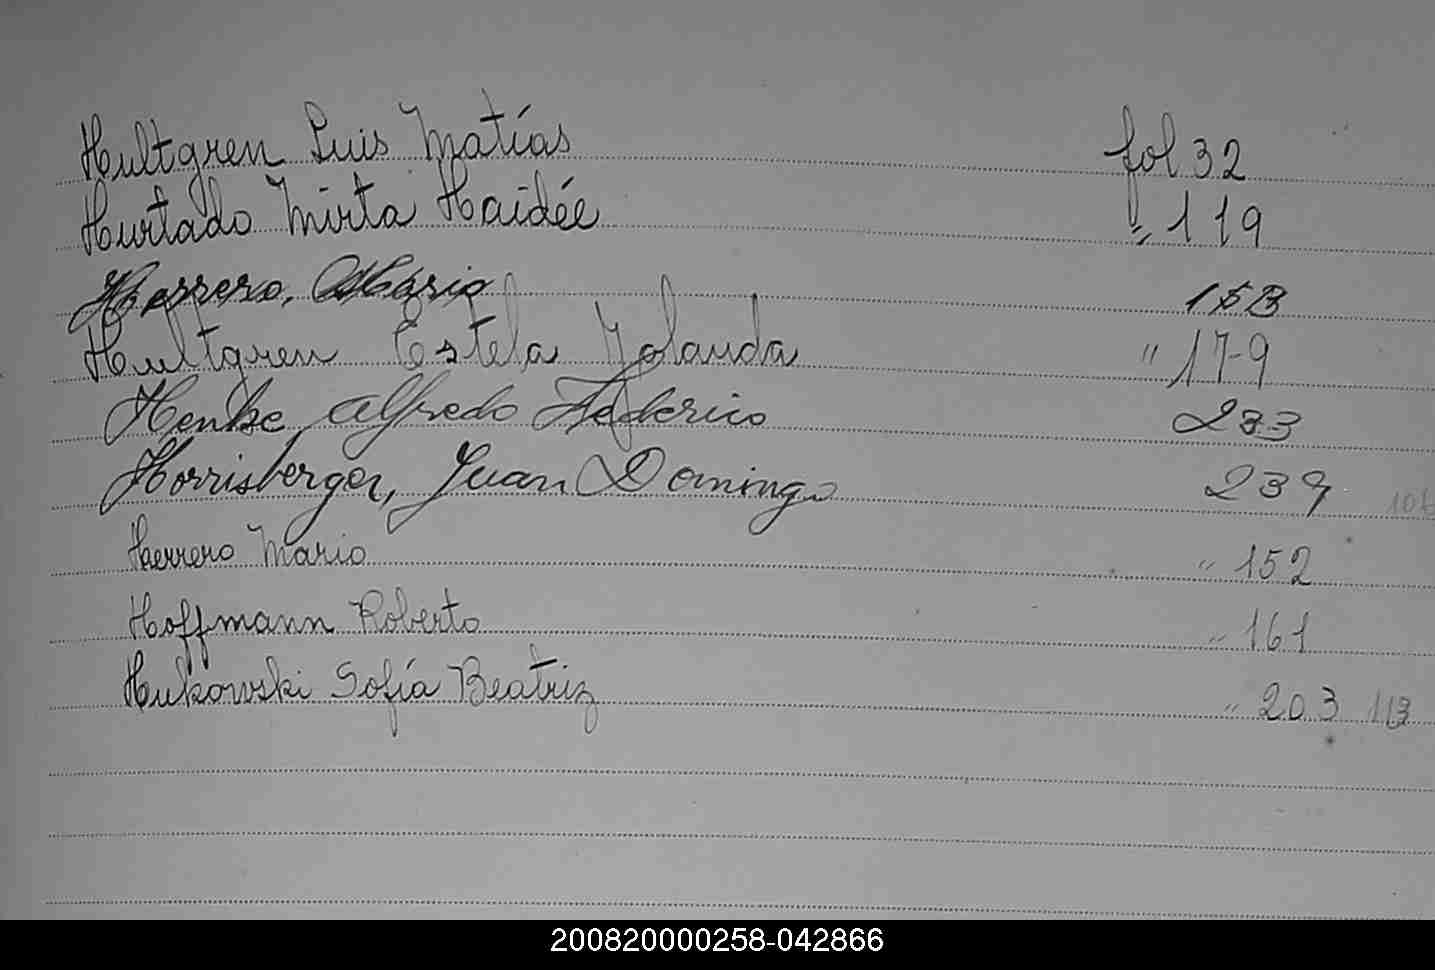 Hultgren Luis Matías fol 32
Hurtado Mirta Haidée " 119
Herrero, Mario
Hultgren Estela Yolanda " 179
Henke Alfredo Federico 233
Horrisberger, Juan Domingo 239
Herrero Mario " 152
Hoffmann Roberto " 161
Hukowski Sofía Beatriz " 203 113
200820000258-042866